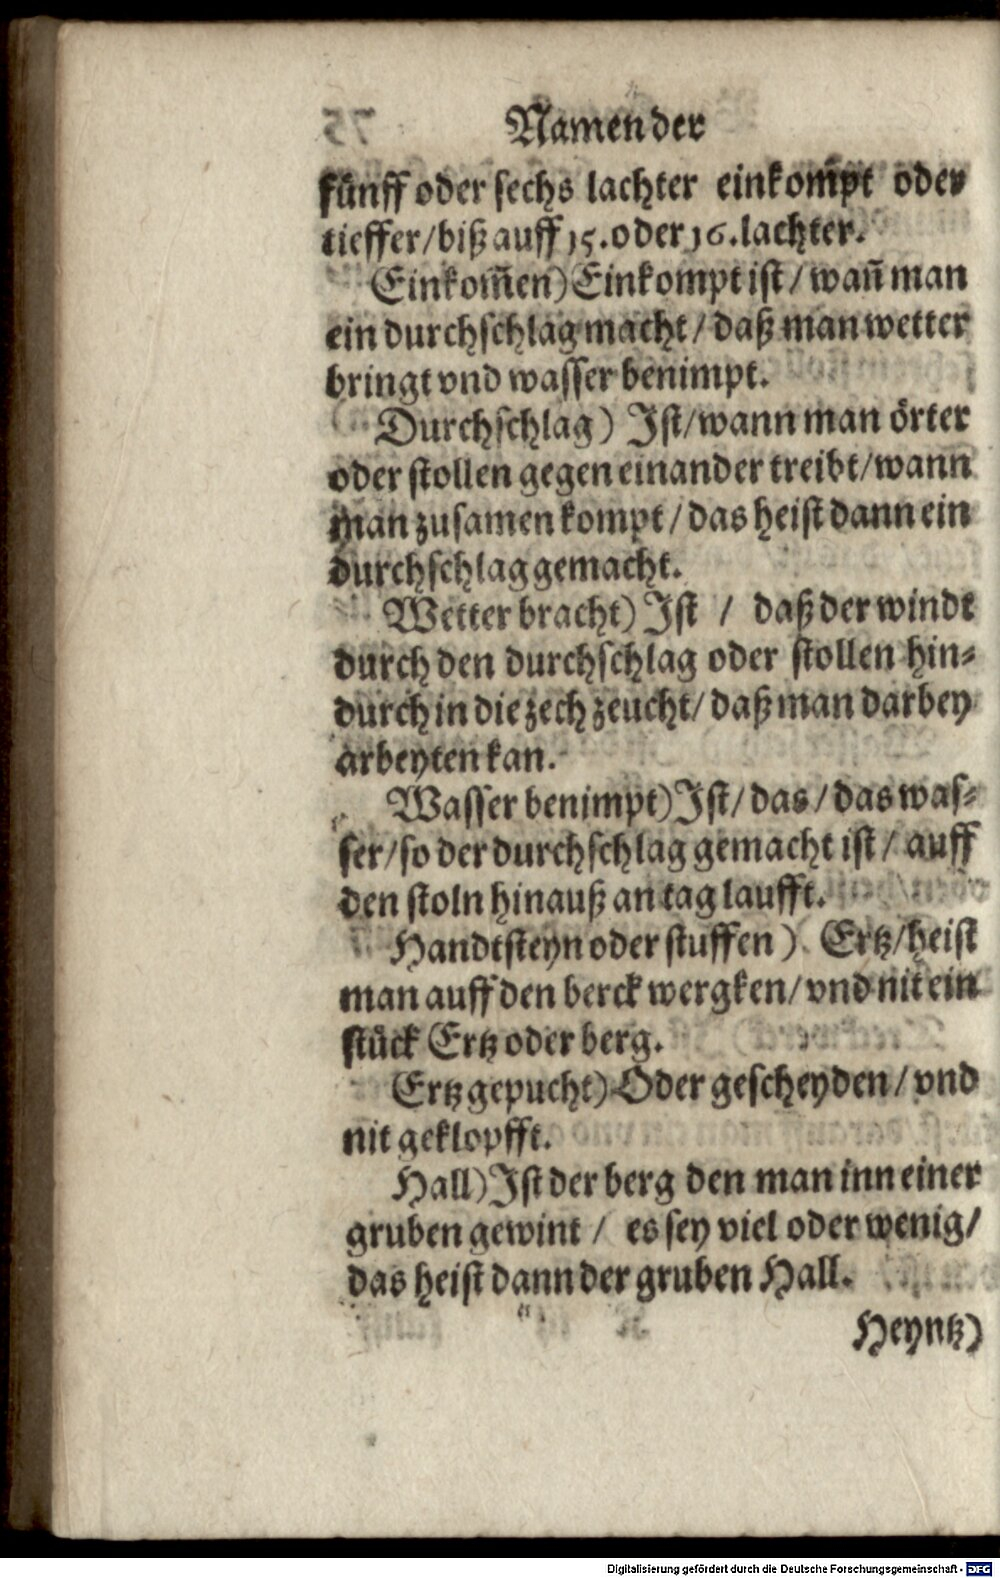 Namen der
fünff oder sechs lachter einkom̄pt oder
tieffer/biß auff 15.oder 16.lachter.
Einkom̄en) Einkompt ist/wan̄ man
ein durchschlag macht/daß man wetter
bringt vnd wasser benimpt.
Durchschlag) Ist/wann man örter
oder stollen gegen einander treibt/wann
man zusamen kompt/das heist dann ein
durchschlag gemacht.
Wetter bracht) Ist / daß der windt
durch den durchschlag oder stollen hin-
durch in die zech zeucht/daß man darbey
arbeyten kan.
Wasser benimpt) Ist/das/das was-
ser/so der durchschlag gemacht ist/auff
den stoln hinauß an tag laufft.
Handtsteyn oder stuffen) Ertz/heist
man auff den berckwergken/vnd nit ein
stück Ertz oder berg.
Ertz gepucht) Oder gescheyden/vnd
nit geklopfft.
Hall) Ist der berg den man inn einer
gruben gewint / es sey viel oder wenig/
das heist dann der gruben Hall.
Heyntz)
Digitalisierung gefördert durch die Deutsche Forschungsgemeinschaft - DFG